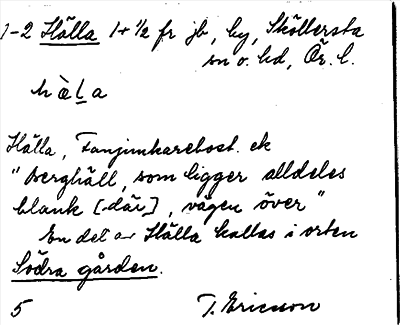 1-2 Hälla 1+1/2 fr jb, by, Sköllersta
sn o. hd, Ör. l.
hàḷa
Hälla, Fanjunkarebost. ek
"Berghäll, som ligger alldeles
blank [där], vägen över"
En del av Hälla kallas i orten
Södra gården.
5 T. Ericsson